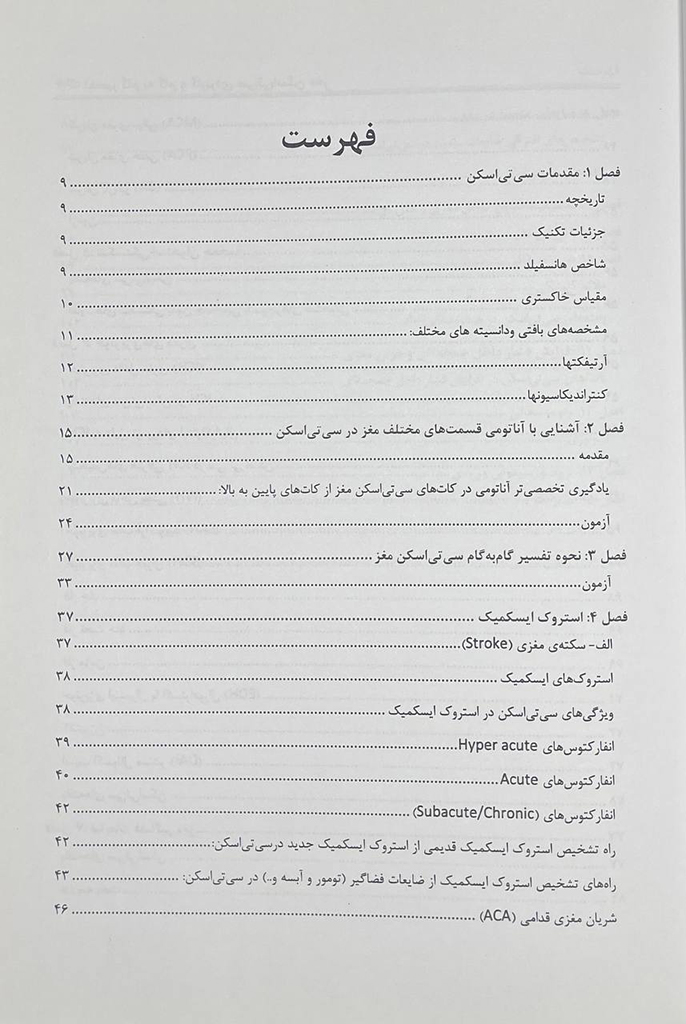 فهرست
فصل ۱: مقدمات سی‌تی‌اسکن ........ ۹
تاریخچه ........ ۹
جزئیات تکنیک ........ ۹
شاخص هانسفیلد ........ ۹
مقیاس خاکستری ........ ۱۰
مشخصه‌های بافتی ودانسیته های مختلف: ........ ۱۱
آرتیفکتها ........ ۱۲
کنتراندیکاسیونها ........ ۱۳
فصل ۲: آشنایی با آناتومی قسمت‌های مختلف مغز در سی‌تی‌اسکن ........ ۱۵
مقدمه ........ ۱۵
یادگیری تخصصی‌تر آناتومی در کات‌های سی‌تی‌اسکن مغز از کات‌های پایین به بالا: ........ ۲۱
آزمون ........ ۲۴
فصل ۳: نحوه تفسیر گام‌به‌گام سی‌تی‌اسکن مغز ........ ۲۷
آزمون ........ ۳۳
فصل ۴: استروک ایسکمیک ........ ۳۷
الف- سکته‌ی مغزی (Stroke) ........ ۳۷
استروک‌های ایسکمیک ........ ۳۸
ویژگی‌های سی‌تی‌اسکن در استروک ایسکمیک ........ ۳۸
انفارکتوس‌های Hyper acute ........ ۳۹
انفارکتوس‌های Acute ........ ۴۰
انفارکتوس‌های (Subacute/Chronic) ........ ۴۲
راه تشخیص استروک ایسکمیک قدیمی از استروک ایسکمیک جدید درسی‌تی‌اسکن: ........ ۴۲
راه‌های تشخیص استروک ایسکمیک از ضایعات فضاگیر (تومور و آبسه و..) در سی‌تی‌اسکن: ........ ۴۳
شریان مغزی قدامی (ACA) ........ ۴۶